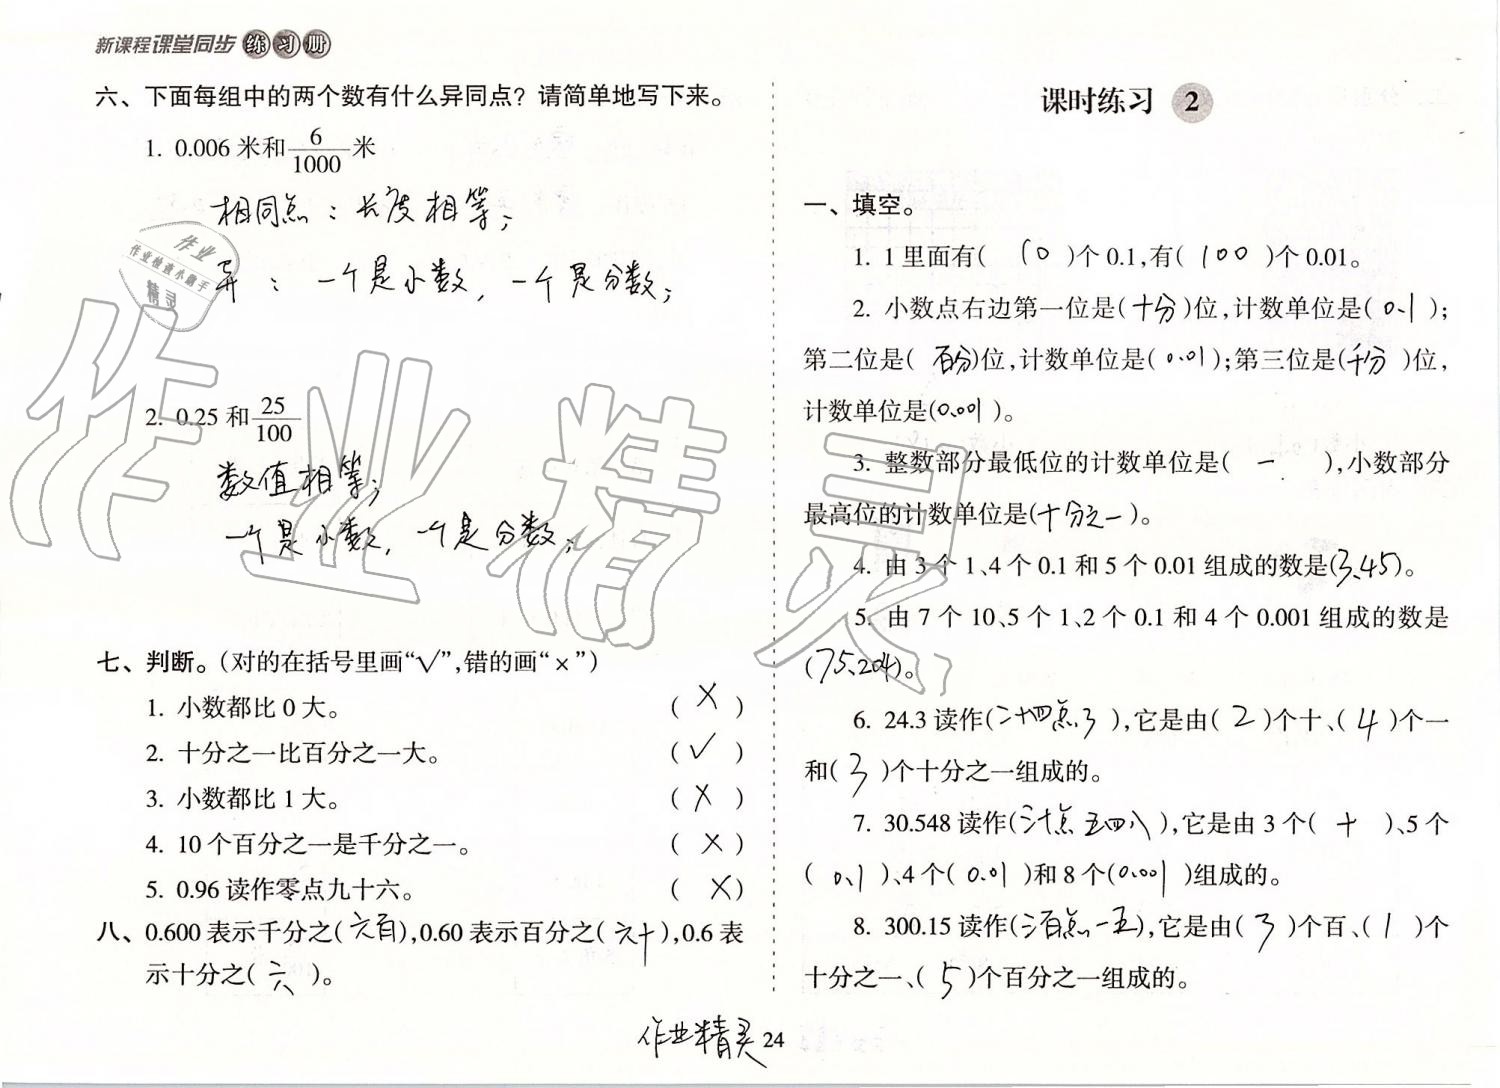 新课程课堂同步练习册
六、下面每组中的两个数有什么异同点？请简单地写下来。
1. 0.006 米和 6/1000 米
相同点：长度相等；
异：一个是小数，一个是分数；
2. 0.25 和 25/100
数值相等；
一个是小数，一个是分数；
七、判断。（对的在括号里画“√”，错的画“×”）
1. 小数都比 0 大。 （ × ）
2. 十分之一比百分之一大。 （ √ ）
3. 小数都比 1 大。 （ × ）
4. 10 个百分之一是千分之一。 （ × ）
5. 0.96 读作零点九十六。 （ × ）
八、0.600 表示千分之( 六百 ),0.60 表示百分之( 六十 ),0.6 表
示十分之( 六 )。
课时练习 2
一、填空。
1. 1 里面有( 10 )个 0.1,有( 100 )个 0.01。
2. 小数点右边第一位是( 十分 )位,计数单位是( 0.1 );
第二位是( 百分 )位,计数单位是( 0.01 );第三位是( 千分 )位,
计数单位是( 0.001 )。
3. 整数部分最低位的计数单位是( 一 ),小数部分
最高位的计数单位是( 十分之一 )。
4. 由 3 个 1、4 个 0.1 和 5 个 0.01 组成的数是( 3.45 )。
5. 由 7 个 10、5 个 1、2 个 0.1 和 4 个 0.001 组成的数是
( 75.204 )。
6. 24.3 读作( 二十四点三 ),它是由( 2 )个十、( 4 )个一
和( 3 )个十分之一组成的。
7. 30.548 读作( 三十点五四八 ),它是由 3 个( 十 )、5 个
( 0.1 )、4 个( 0.01 )和 8 个( 0.001 )组成的。
8. 300.15 读作( 三百点一五 ),它是由( 3 )个百、( 1 )个
十分之一、( 5 )个百分之一组成的。
作业精灵
24
作业
作业检查小助手
精灵
作业精灵